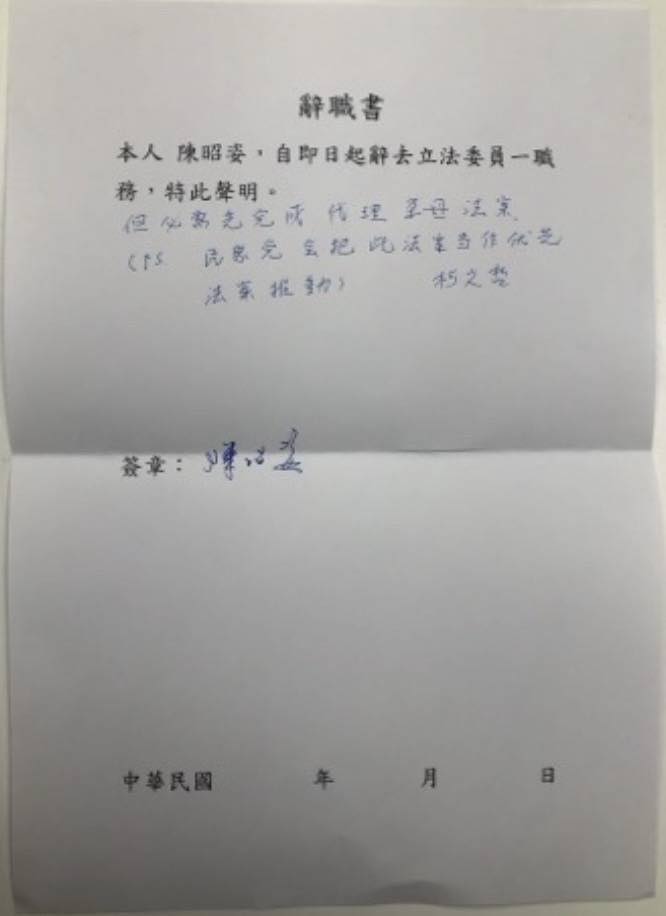 辭職書
本人 陳昭姿，自即日起辭去立法委員一職
務，特此聲明。
但必需先完成 代理孕母法案
(PS 民眾党会把此法案当作优先
法案推動) 柯文哲
簽章： 陳昭姿
中華民國 年 月 日